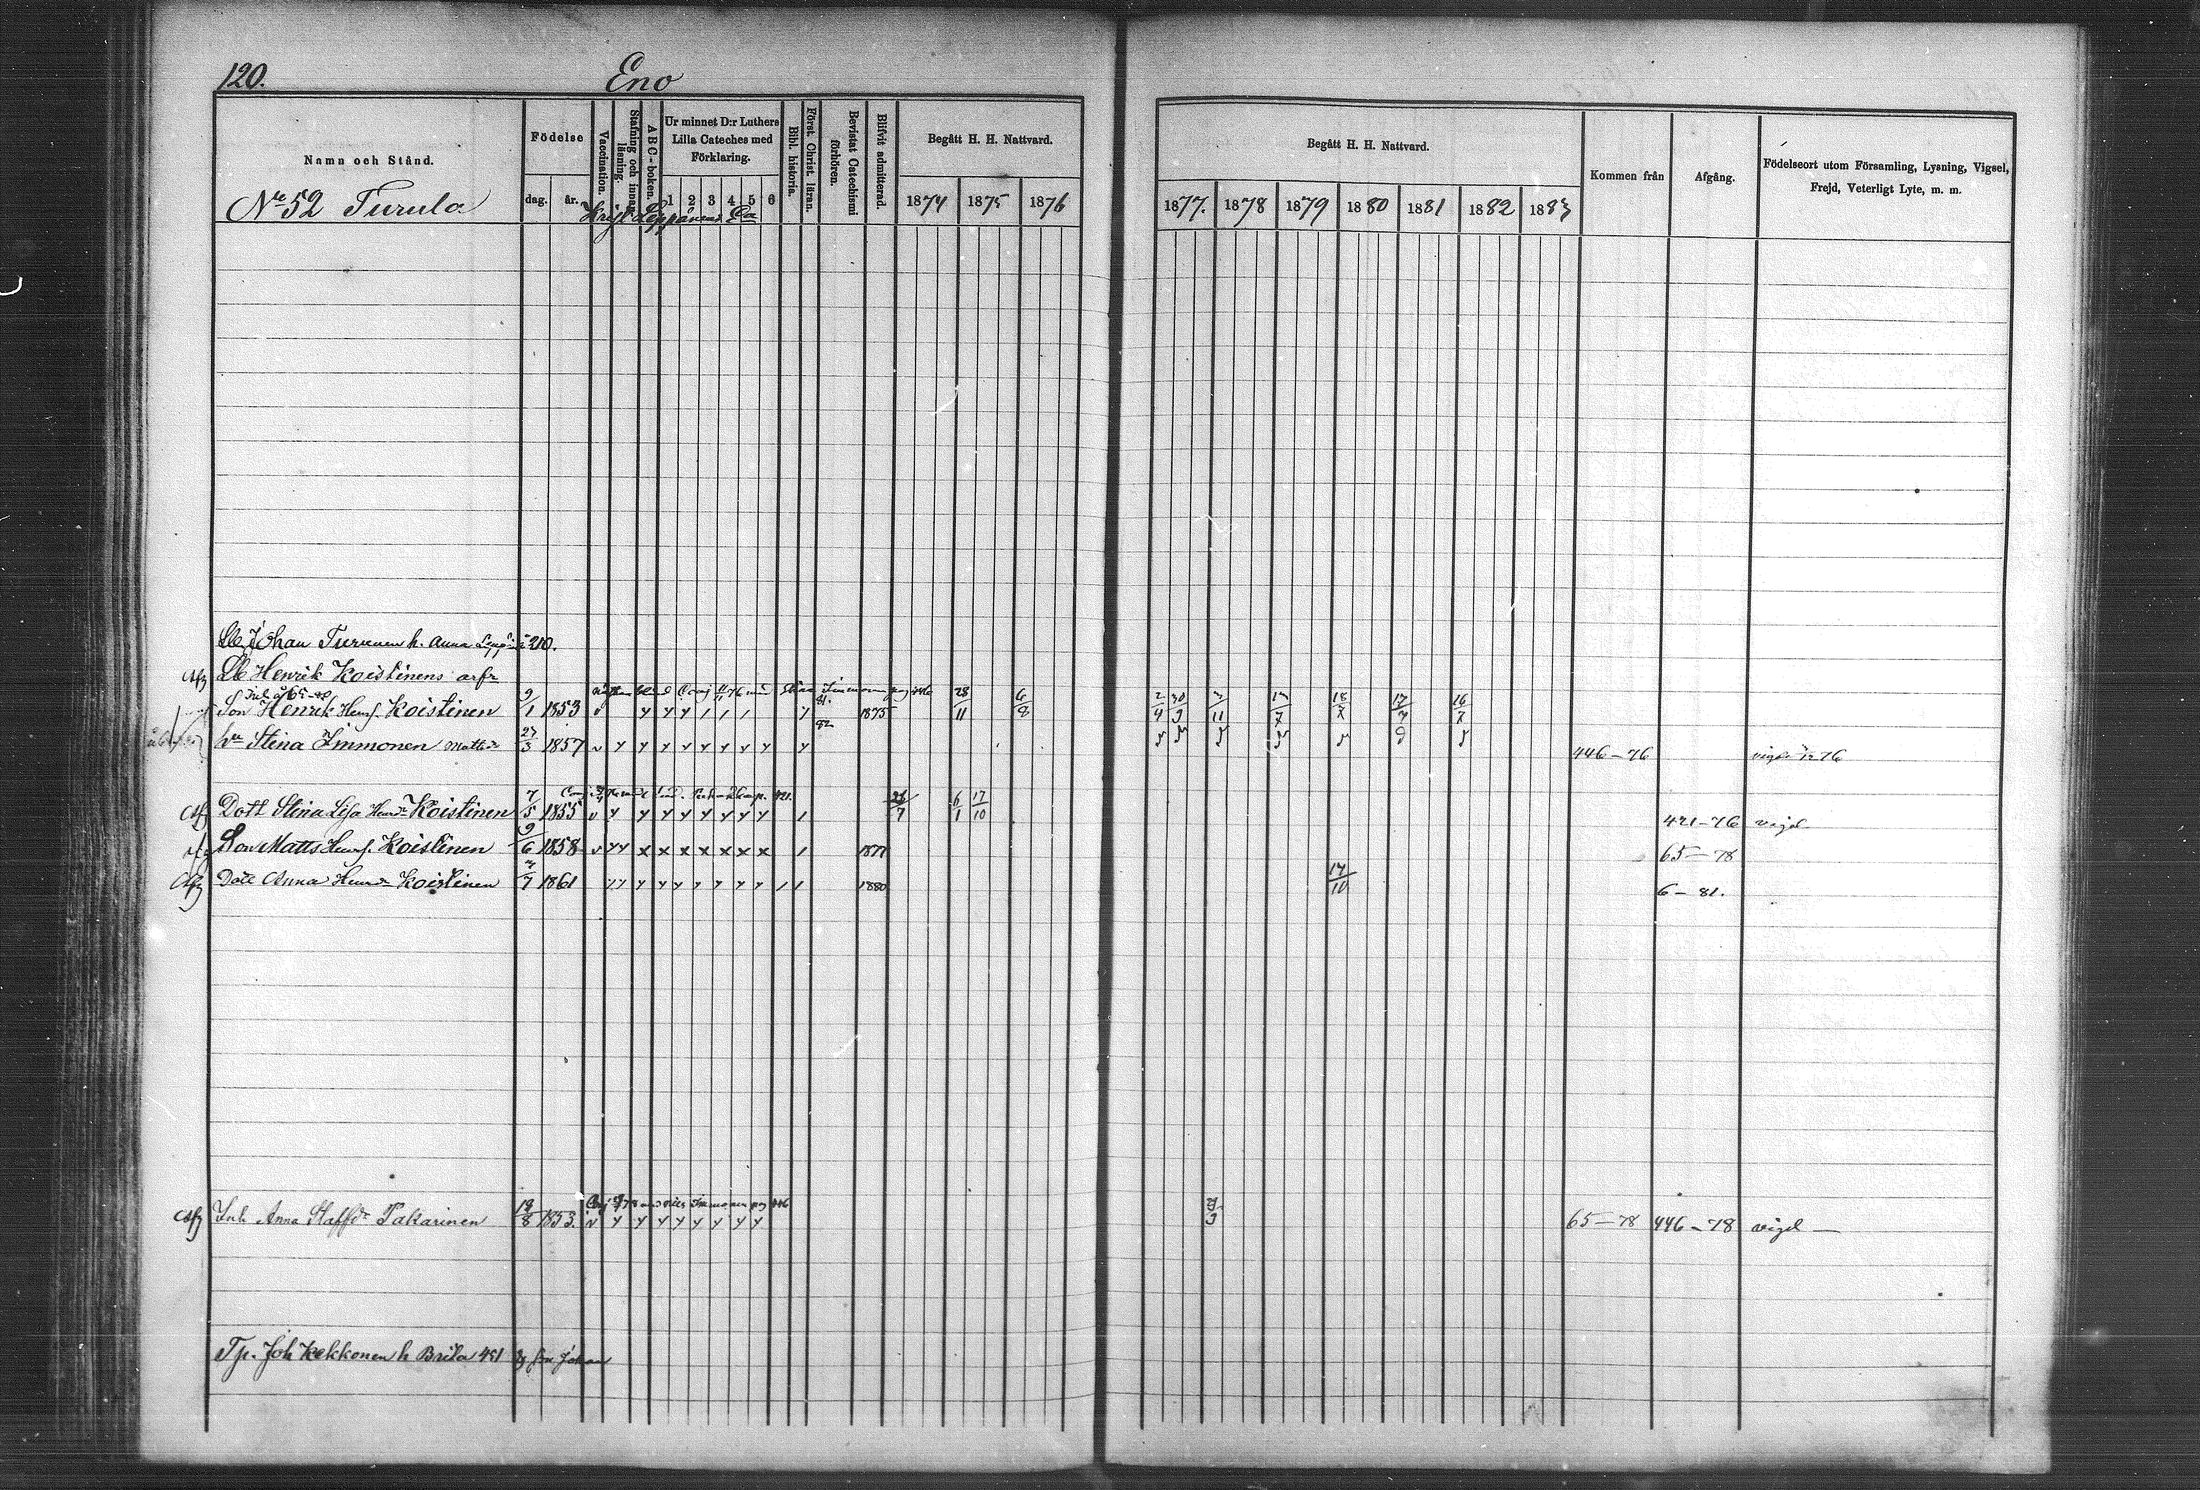 120. Eno
Namn och Stånd.
Födelse
dag. år.
Vaccination.
Stafning och innanläsning.
ABC-boken.
Ur minnet D:r Luthers Lilla Cateches med Förklaring.
1 2 3 4 5 6
Bibl. historia.
Först. Christ. läran.
Bevistat Catechismi förhören.
Blifvit admitterad.
Begått H. H. Nattvard.
1874 1875 1876
Begått H. H. Nattvard.
1877. 1878 1879 1880 1881 1882 1883
Kommen från
Afgång.
Födelseort utom Församling, Lysning, Vigsel, Frejd, Veterligt Lyte, m. m.
No 52 Turula
Johan Turunen h. Anna 210.
Henrik Koistinens arfr
Son Henrik Henrs. Koistinen 9/1 1853 v 1875 28/11 6/8 2/4 30/9 3/11 13/7 18/7 17/7 16/7
hu Stina Immonen Mattsdr 27/3 1857 446-76
Dott Stina Lisa Henrdr Koistinen 7/5 1855 v 28/7 6/1 17/10 421-76 vigd
Son Matts Henrs. Koistinen 9/6 1858 v 1877 65-78
Dott Anna Henrdr Koistinen 7/7 1861 1880 17/10 6-81.
Inh Anna Staffdr Pakarinen 19/8 1853. v 65-78 446-78 vigd
Tp. Joh Kekkonen h Brita 491 son Johan